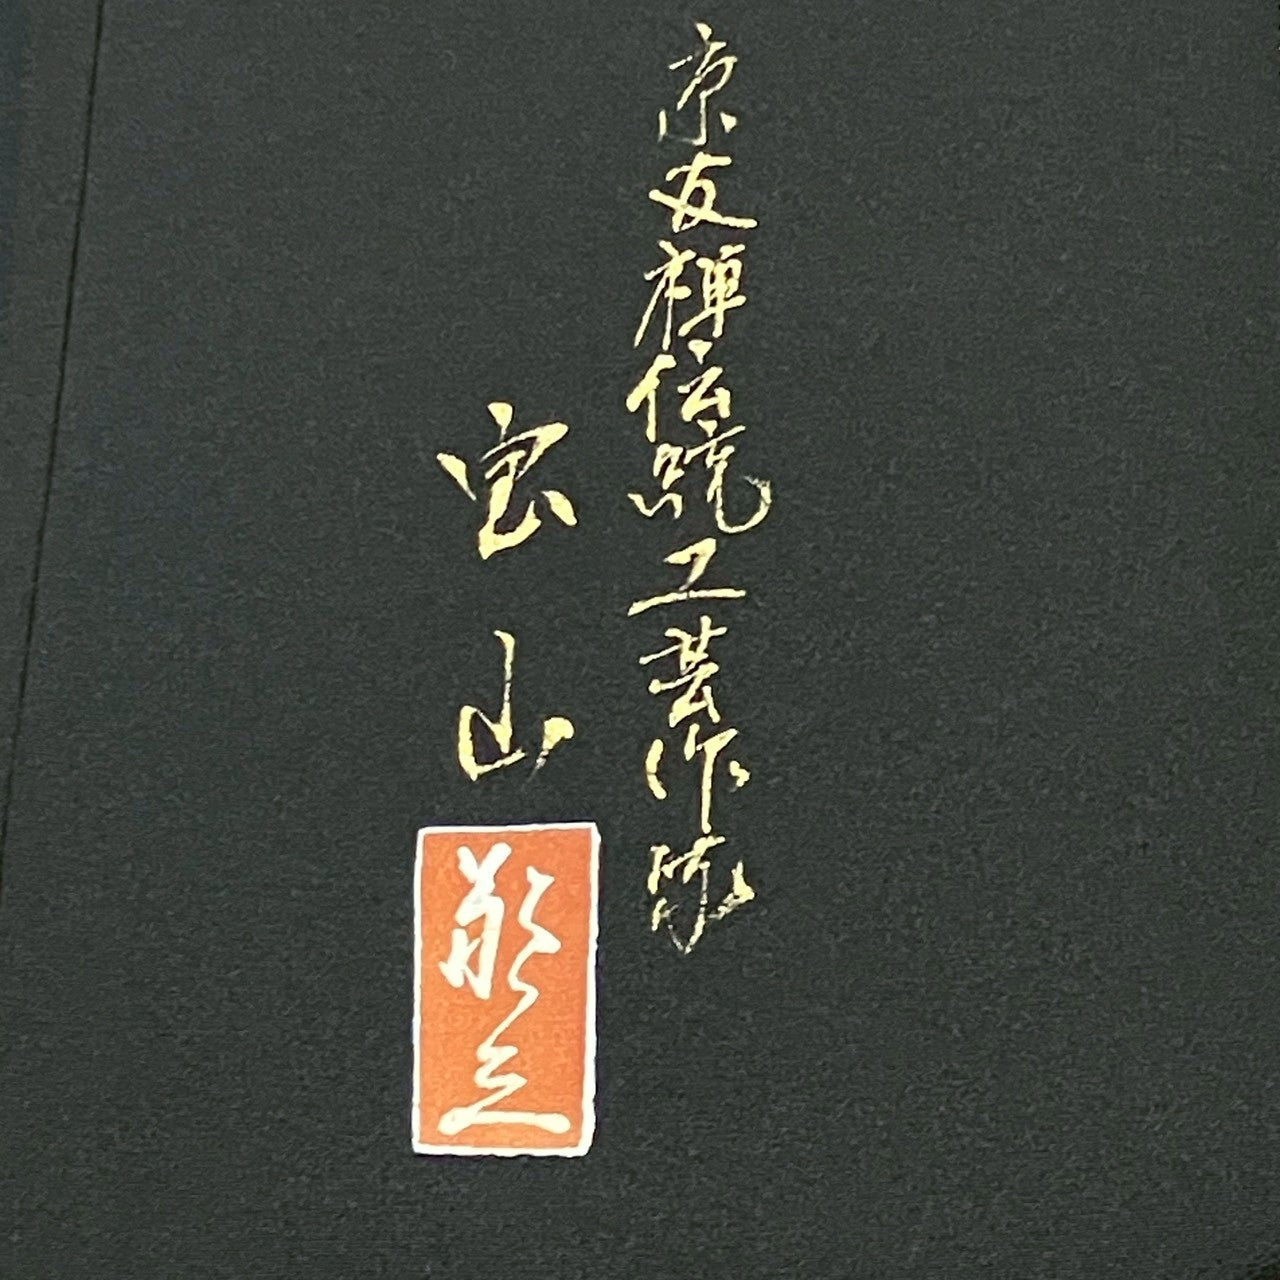 京友禅伝統工芸作家
宝山
敬之